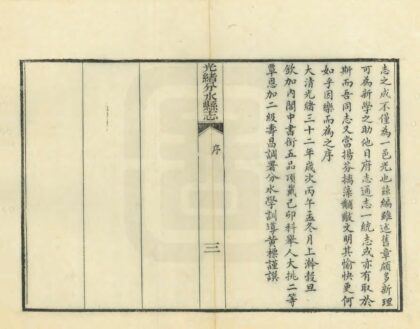 志之成不僅為一邑光也茲編雖述舊章頗多新理
可為新學之助他日府志通志一統志或亦有取於
斯而吾同志又當揚芬摛藻黼黻文明其愉快更何
如乎因樂而為之序
大清光緒三十二年歲次丙午孟冬月上澣穀旦
欽加內閣中書銜五品頂戴己卯科舉人大挑二等
覃恩加二級壽昌調署分水學訓導黃標謹譔
光緒分水縣志
序
三